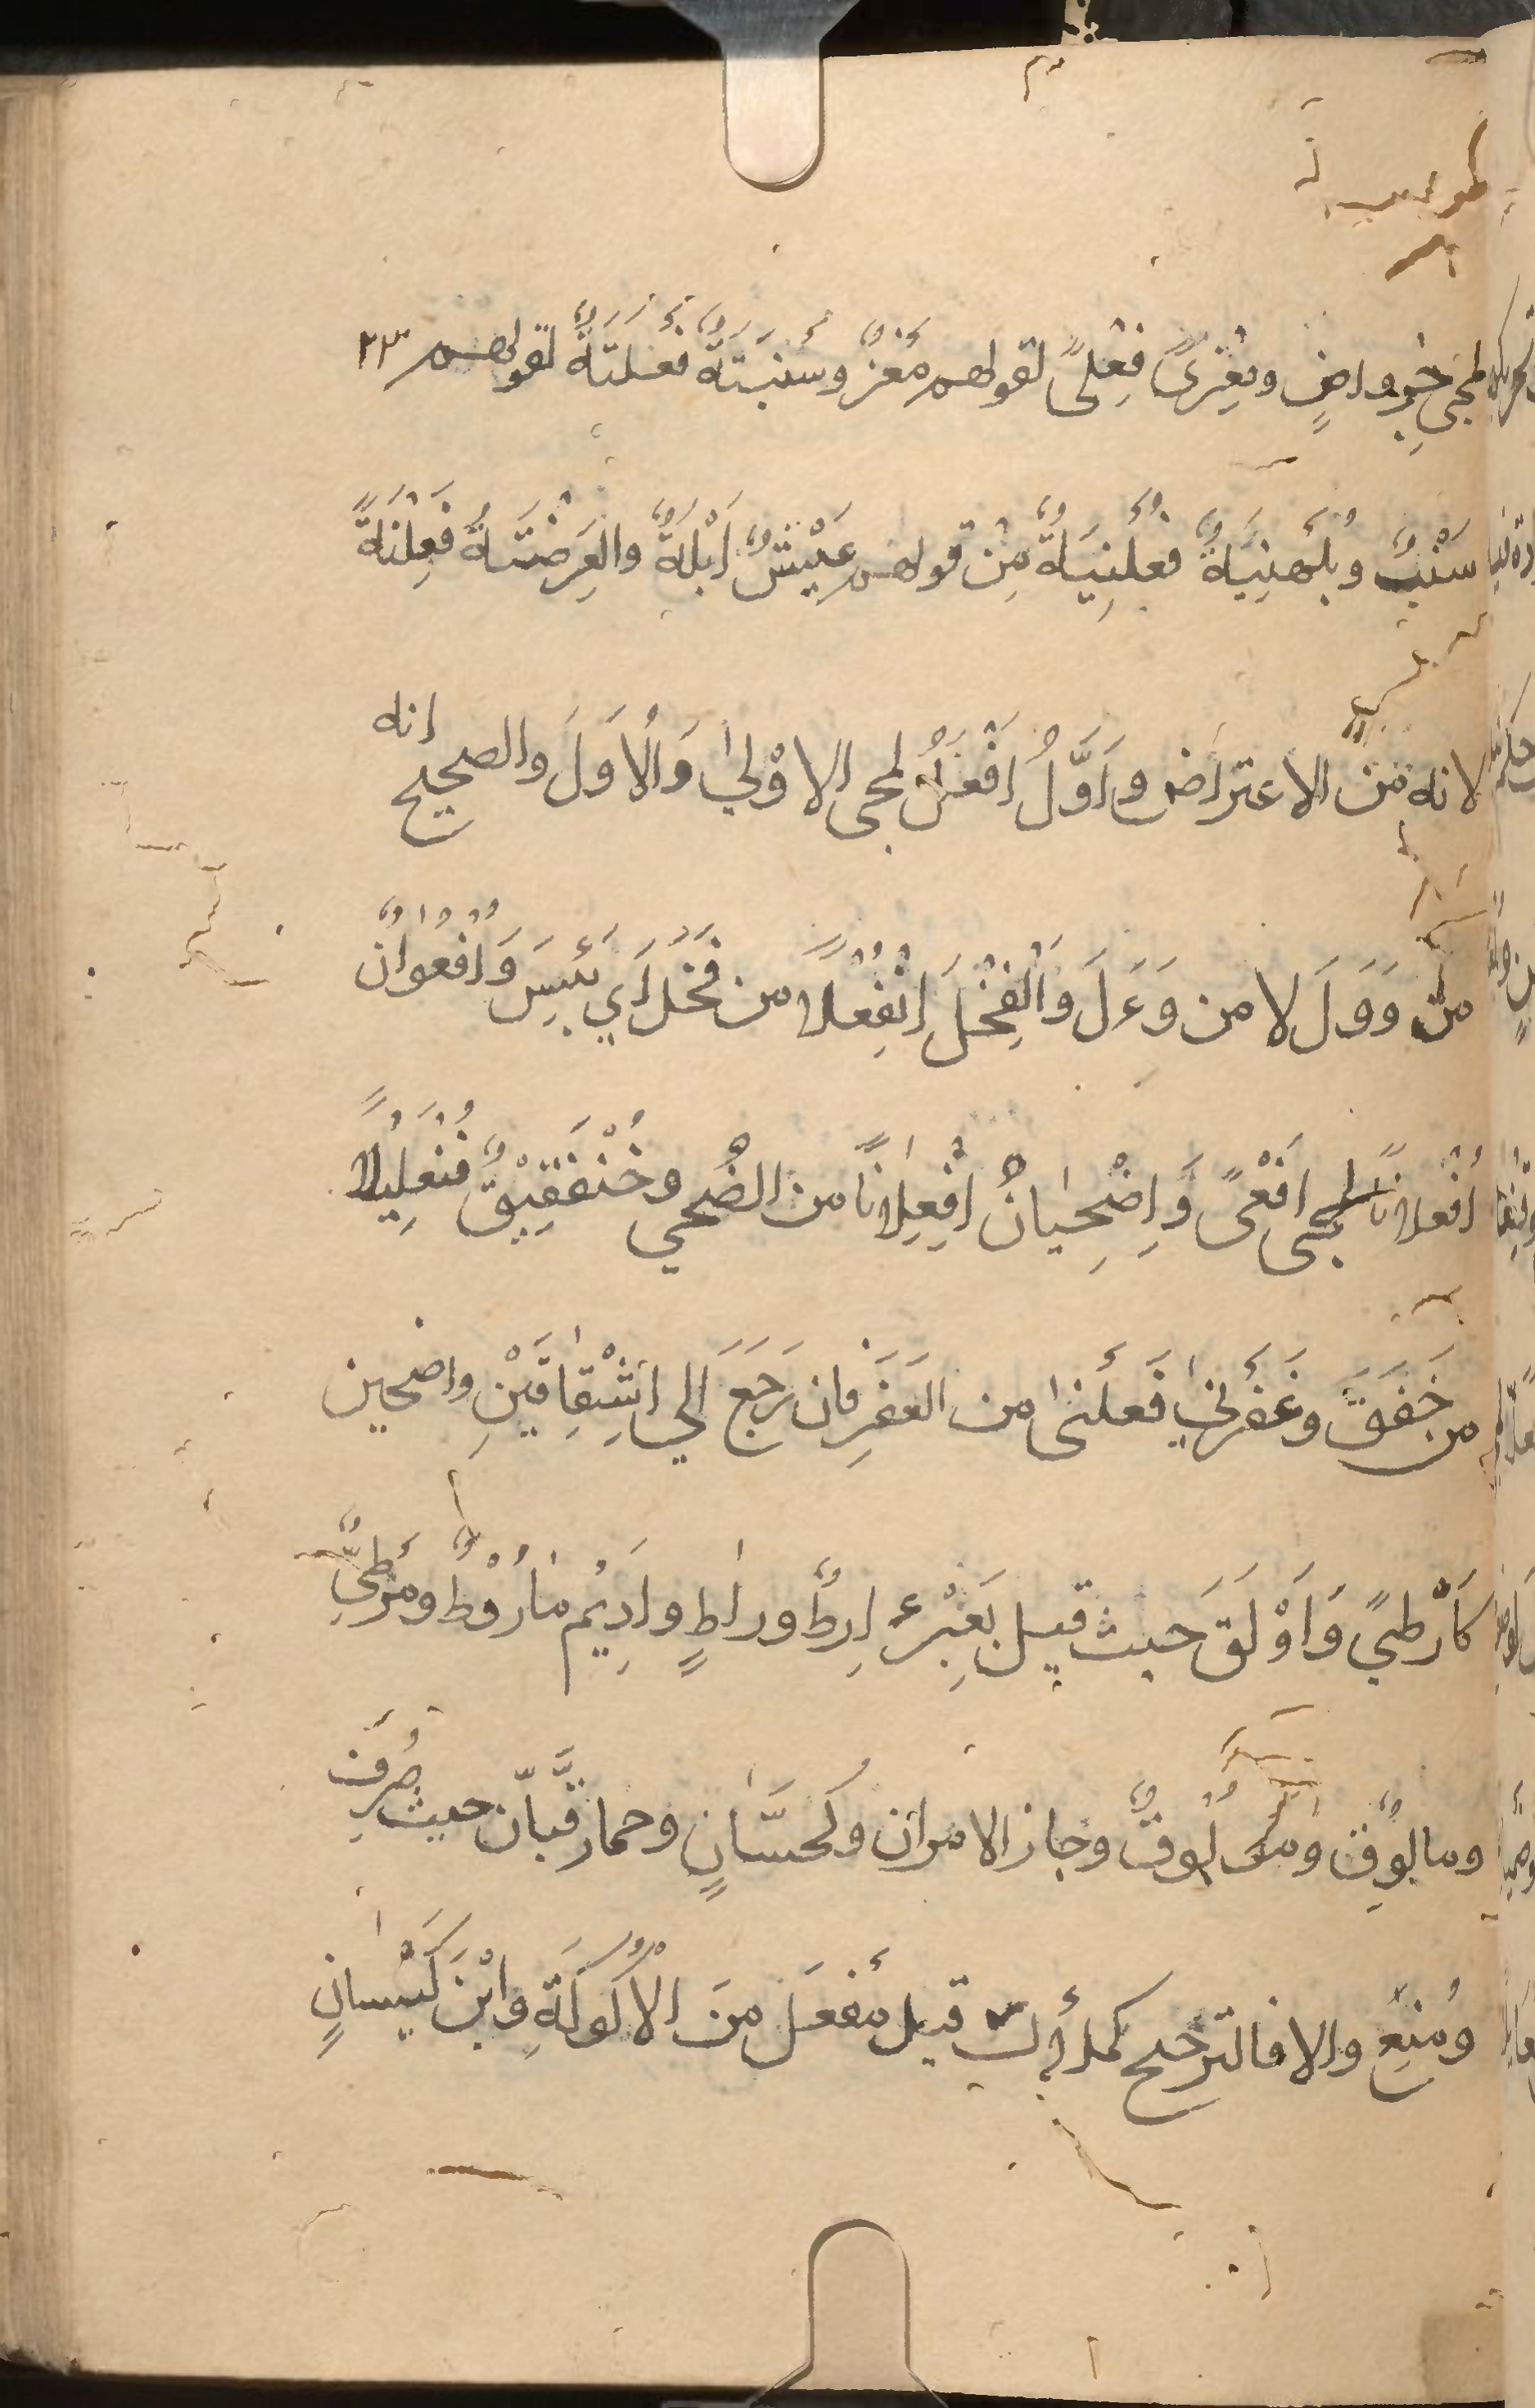 لمجئ جرواض ومِعْزىً فِعْلىً لقولهم مَعْزٌ وسَنْبَتَةٌ فَعْلَتَةٌ لقولهم
سَنْبٌ وبُلَهْنِيَةٌ فُعَلْنِيَةٌ مِنْ قولهم عَيْشٌ اَبْلَهُ والعِرَضْنَةُ فِعَلْنَةً
لانه مِنَ الاعتراض وَاَوَّلُ اَفْعَلُ لمجئ الاوْلىٰ وَالْاُوَلَ والصحيح انه
من وَوَلَ لا من وَءَلَ وَاِنْقَحْلَ اِنْفَعْلاً من قَحَلَ اَي يَبِسَ وَاُفْعُوَانٌ
اُفْعُلاناً لمجئ اَفْعىً وَاِضْحِيانٌ اِفْعِلاناً من الضُحى وخَنْفَقِيْقٌ فَنْعَلِيْلاً
من خَفَقَ وعَفَرْنىٰ فَعَلْنىٰ من العَفَرِ فان رَجَعَ الي اشْتِقاقَيْنِ واضحين
كاَرْطيً وَاَوْلَقَ حيث قيل بَعِيْرٌ اٰرِطٌ وراطٍ واَدِيْم مأرُوْطٌ ومَرْطِيٌّ
ومالُوقٌ ومولُوقٌ وجاز الامران وكحسّانٍ وحمار قَبّانَ حيث صُرِفَ
ومُنِعَ والا فالترجيح كملأَك قيل مَفْعَل مِنَ الاَلُوكَةِ وابْنُ كَيْسانٍ